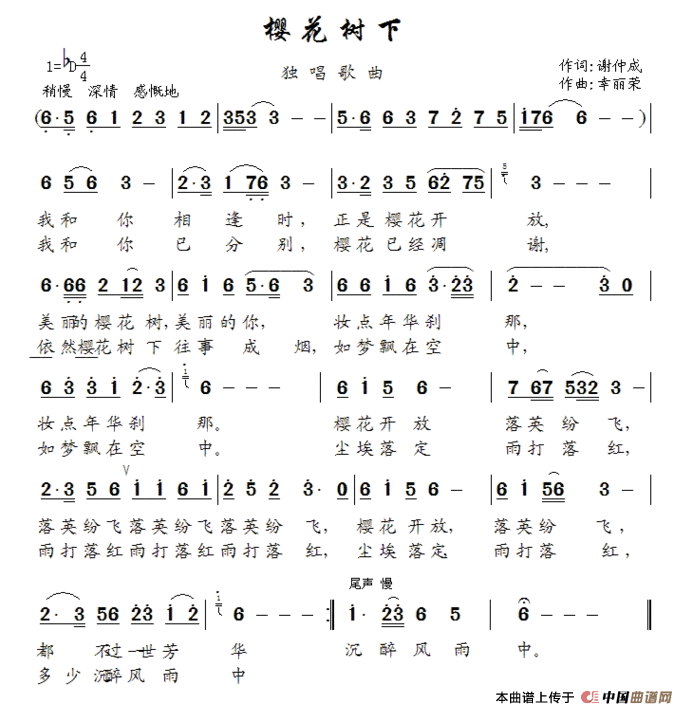 樱花树下
1=♭D 4/4
独唱歌曲
作词:谢仲成
作曲:幸丽荣
稍慢 深情 感慨地
(6·5 6 1 2 3 1 2 | 353 3 - - | 5·6 6 3 7 2 7 5 | i76 6 - - )|
6 5 6 3 - | 2·3 1 76 3 - | 3·2 3 5 62 75 | 5 i 3 - - |
我和 你 相 逢 时, 正是 樱花开 放,
我和 你 已 分 别, 樱花已经凋 谢,
6·66 2 12 3 | 6 i 6 5·6 3 | 6 i i 6 3·23 | 2 - - 3 0 |
美丽的樱花 树,美丽的你, 妆点年华刹 那,
依然樱花树下 往事 成 烟,如梦飘在空 中,
6 3 3 i 2·3 | i 6 - - | 6 i 5 6 - | 7 67 532 3 - |
妆点年华刹 那。 樱花开放 落英 纷 飞,
如梦飘在空 中。 尘埃落定 雨打 落 红,
2·3 5 6 V i 6 6 i | 2 5 2 3·0 | 6 i 5 6 - | 6 i 56 3 - |
落英纷飞落英纷飞落英纷 飞, 樱花 开放, 落英纷 飞,
雨打落红雨打落红雨打落 红, 尘埃落定, 雨打落 红,
尾声 慢
2· 3 56 23 i 2 | i 6 - - :| i· 23 6 5 | 6 - - - ‖
都 不过一世芳 华 沉 醉风雨 中。
多少沉醉风雨 中
本曲谱上传于 中国曲谱网